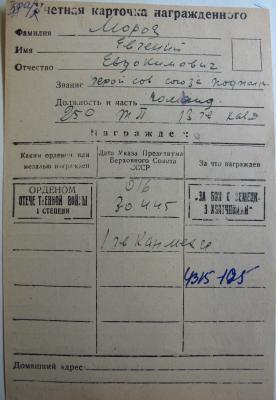 Учетная карточка награжденного
Фамилия Мороз
Имя Евгений
Отчество Евдокимович
Звание герой сов союза подполк
Должность и часть команд.
250 тп 13 гв кавд
Награжден:
Каким орденом или медалью награжден
Дата Указа Президиума Верховного Совета СССР
За что награжден
ОРДЕНОМ
ОТЕЧЕСТВЕННОЙ ВОЙНЫ
I СТЕПЕНИ
016
30 4 45
„ЗА БОИ С НЕМЕЦК.
1 гв Кан
4315 125
Домашний адрес